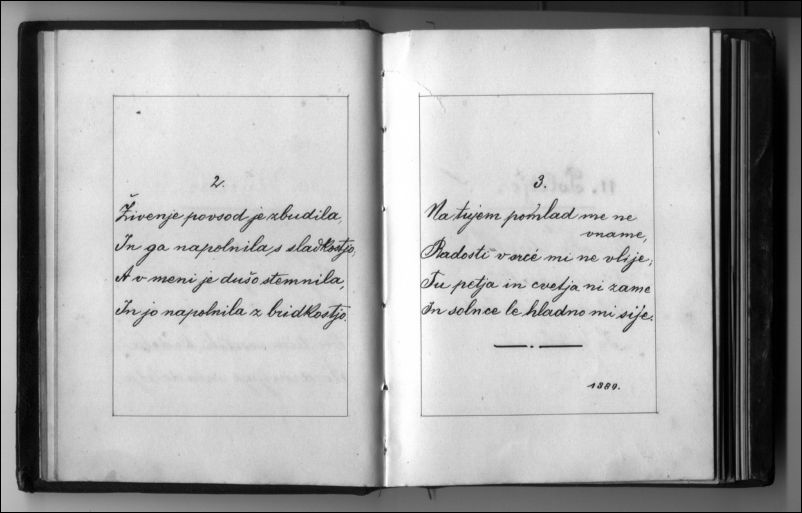 2.
Živenje povsod je zbudila,
In ga napolnila s sladkostjo,
A v meni je dušo stemnila,
In jo napolnila z bridkostjo.
3.
Na tujem pomlad me ne
vname,
Radosti v srcé mi ne vlije;
Tu petja in cvetja ni zame
In solnce le hladno mi sije.
1889.
11.